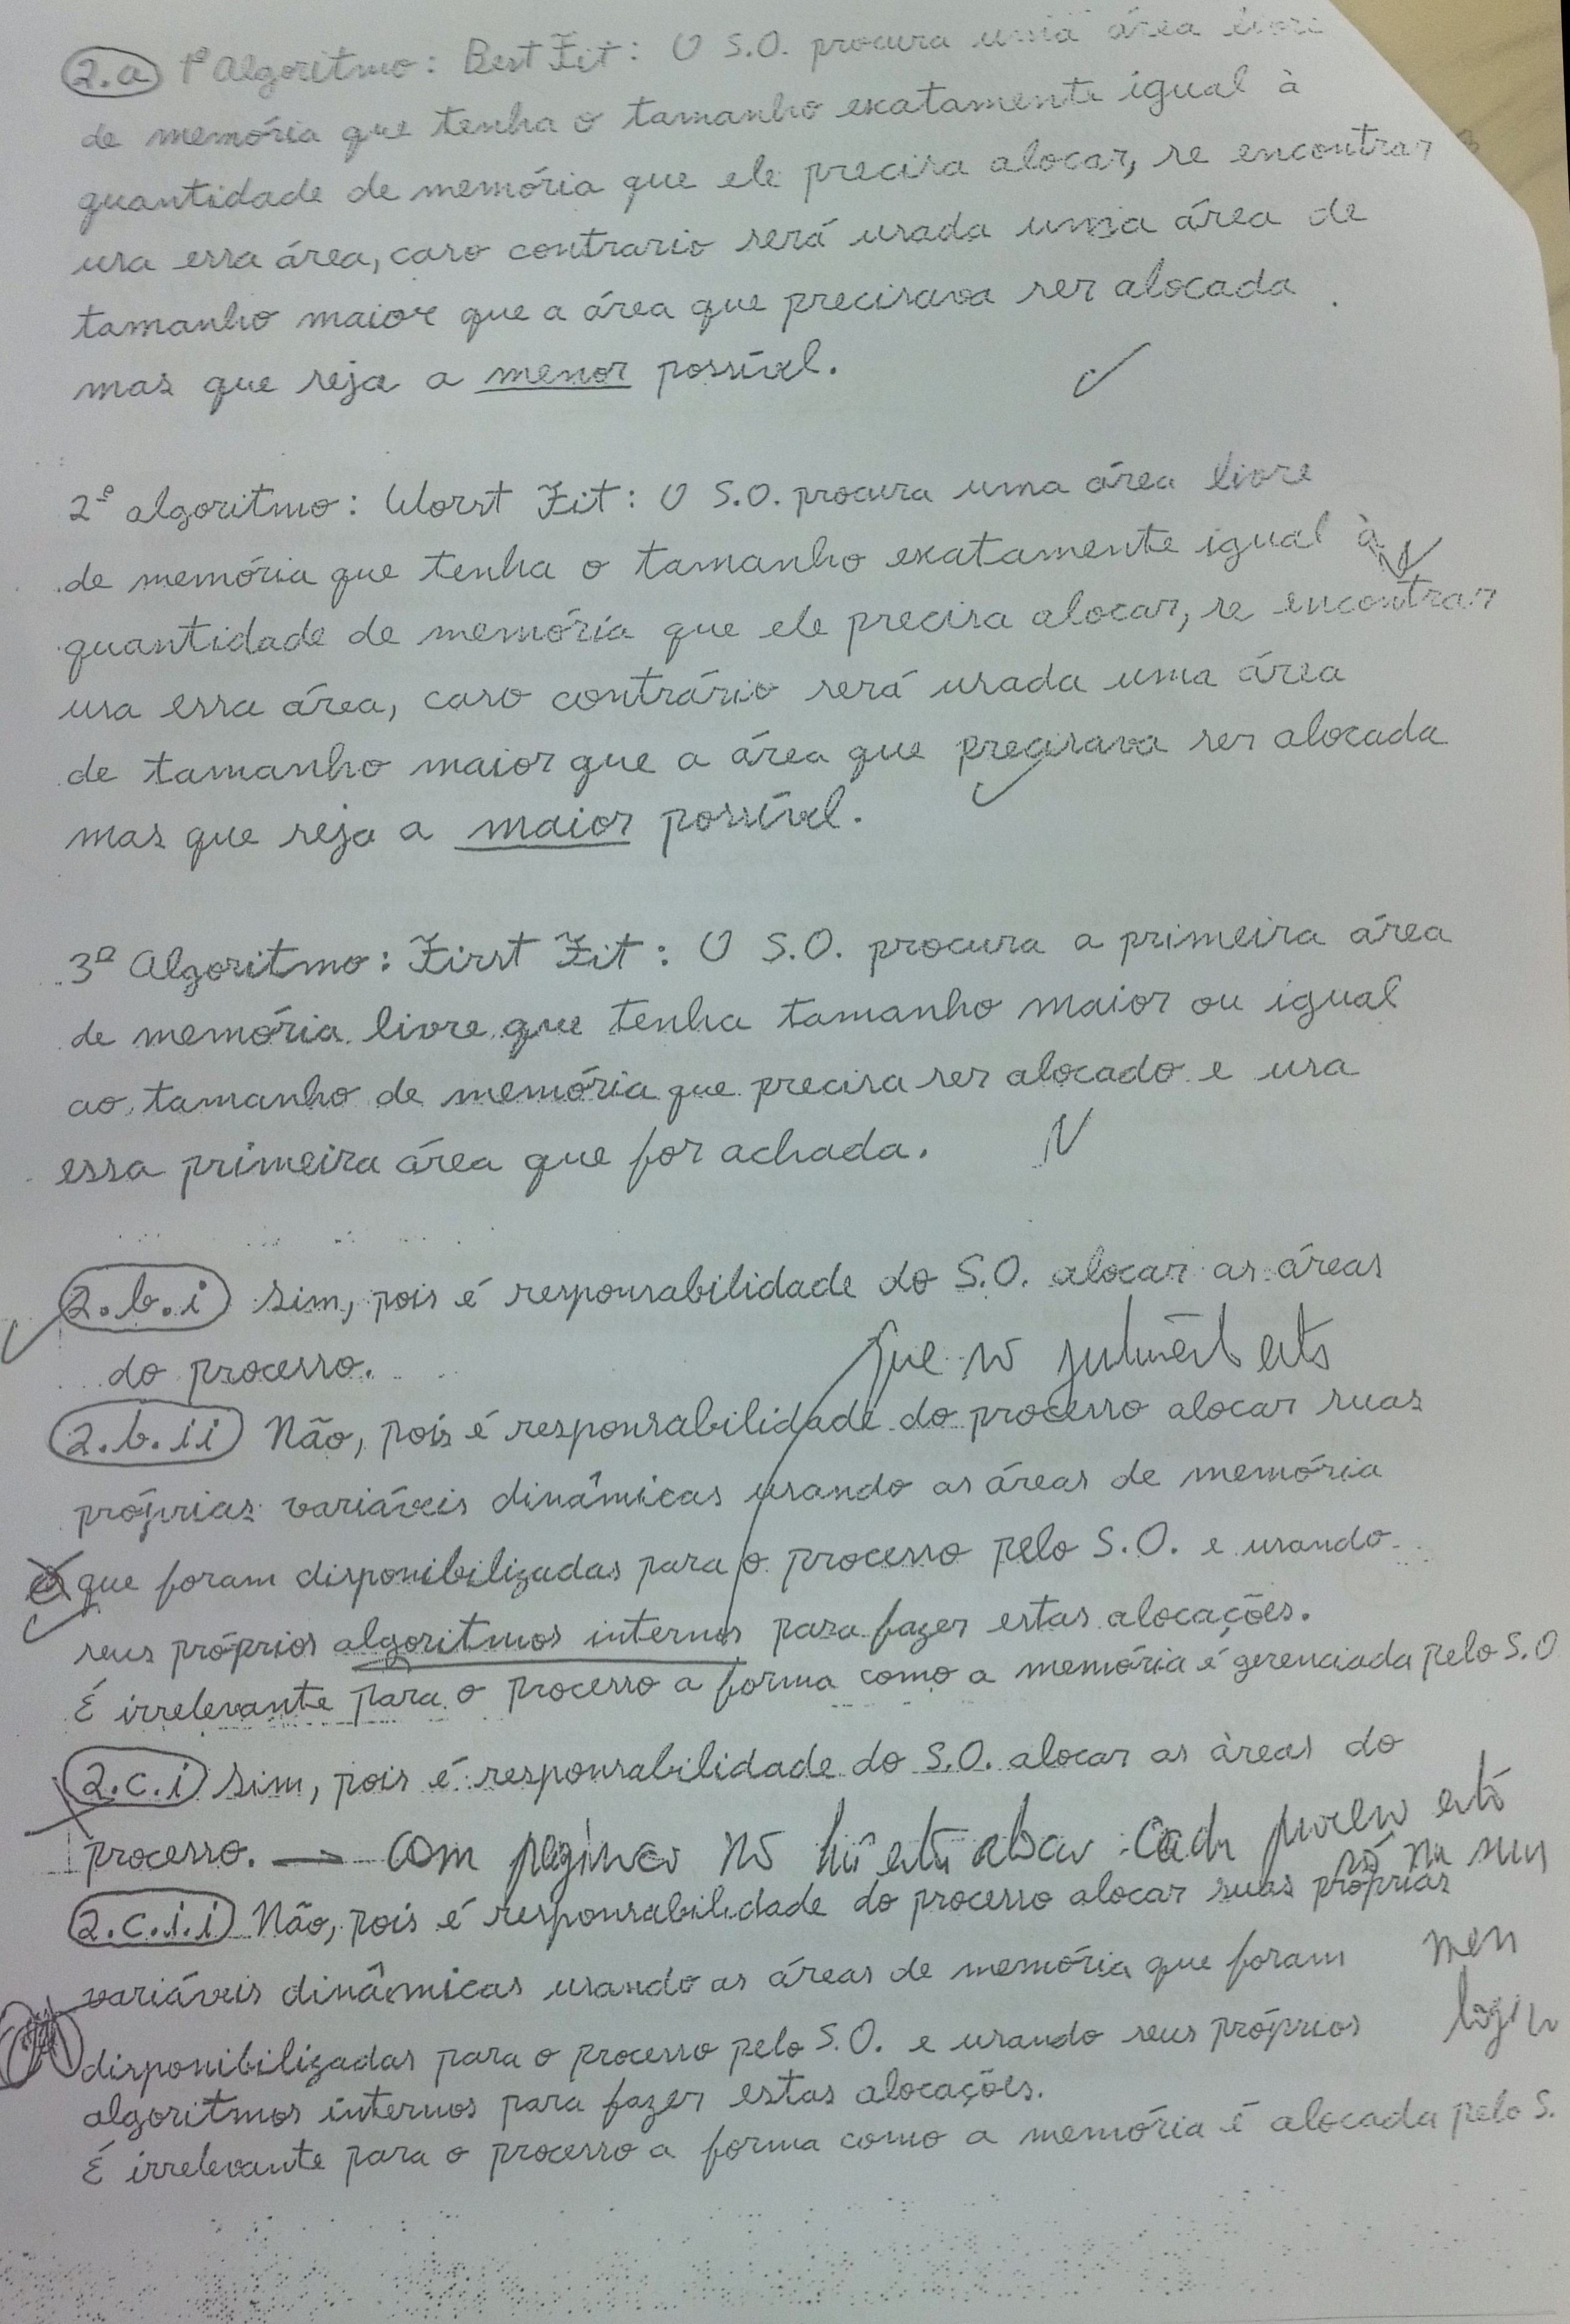 2.a 1º Algoritmo: Best Fit: O S.O. procura uma área livre
de memória que tenha o tamanho exatamente igual à
quantidade de memória que ele precisa alocar, se encontrar
usa essa área, caso contrario será usada uma área de
tamanho maior que a área que precisava ser alocada
mas que seja a menor possível.
2º algoritmo: Worst Fit: O S.O. procura uma área livre
de memória que tenha o tamanho exatamente igual à
quantidade de memória que ele precisa alocar, se encontrar
usa essa área, caso contrário será usada uma área
de tamanho maior que a área que precisava ser alocada
mas que seja a maior possível.
3º Algoritmo: First Fit: O S.O. procura a primeira área
de memória livre que tenha tamanho maior ou igual
ao tamanho de memória que precisa ser alocado e usa
essa primeira área que for achada.
2.b.i Sim, pois é responsabilidade do S.O. alocar as áreas
do processo.
que
2.b.ii Não, pois é responsabilidade do processo alocar suas
próprias variáveis dinâmicas usando as áreas de memória
que foram disponibilizadas para o processo pelo S.O. e usando
seus próprios algoritmos internos para fazer estas alocações.
É irrelevante para o processo a forma como a memória é gerenciada pelo S.O
2.c.i Sim, pois é responsabilidade do S.O. alocar as àreas do
processo. → com cada está
só na sua
2.c.i.i Não, pois é responsabilidade do processo alocar suas próprias
variáveis dinâmicas usando as áreas de memória que foram
mem
disponibilizadas para o processo pelo S.O. e usando seus próprios
algoritmos internos para fazer estas alocações.
É irrelevante para o processo a forma como a memória é alocada pelo S.